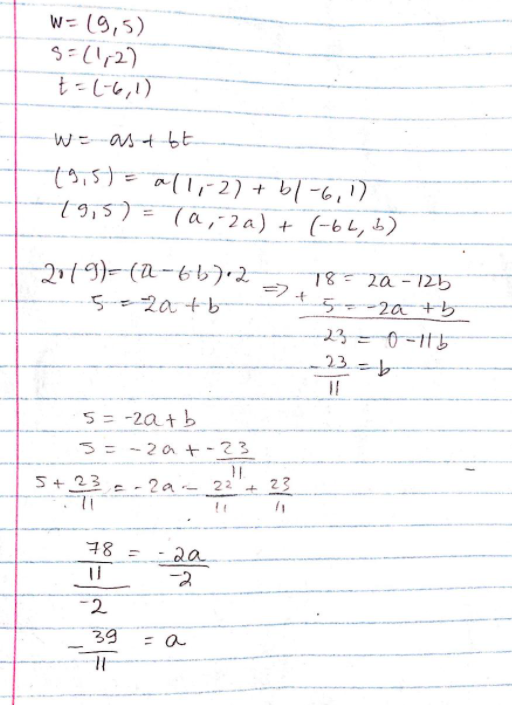 w = (9,5)
s = (1,-2)
t = (-6,1)
w = as + bt
(9,5) = a(1,-2) + b(-6,1)
(9,5) = (a,-2a) + (-6b, b)
2·(9) = (a - 6b)·2 => 18 = 2a - 12b
5 = -2a + b + 5 = -2a + b
23 = 0 - 11b
-23/11 = b
5 = -2a + b
5 = -2a + -23/11
5 + 23/11 = -2a - 22/11 + 23/11
78/11 / -2 = -2a/-2
-39/11 = a